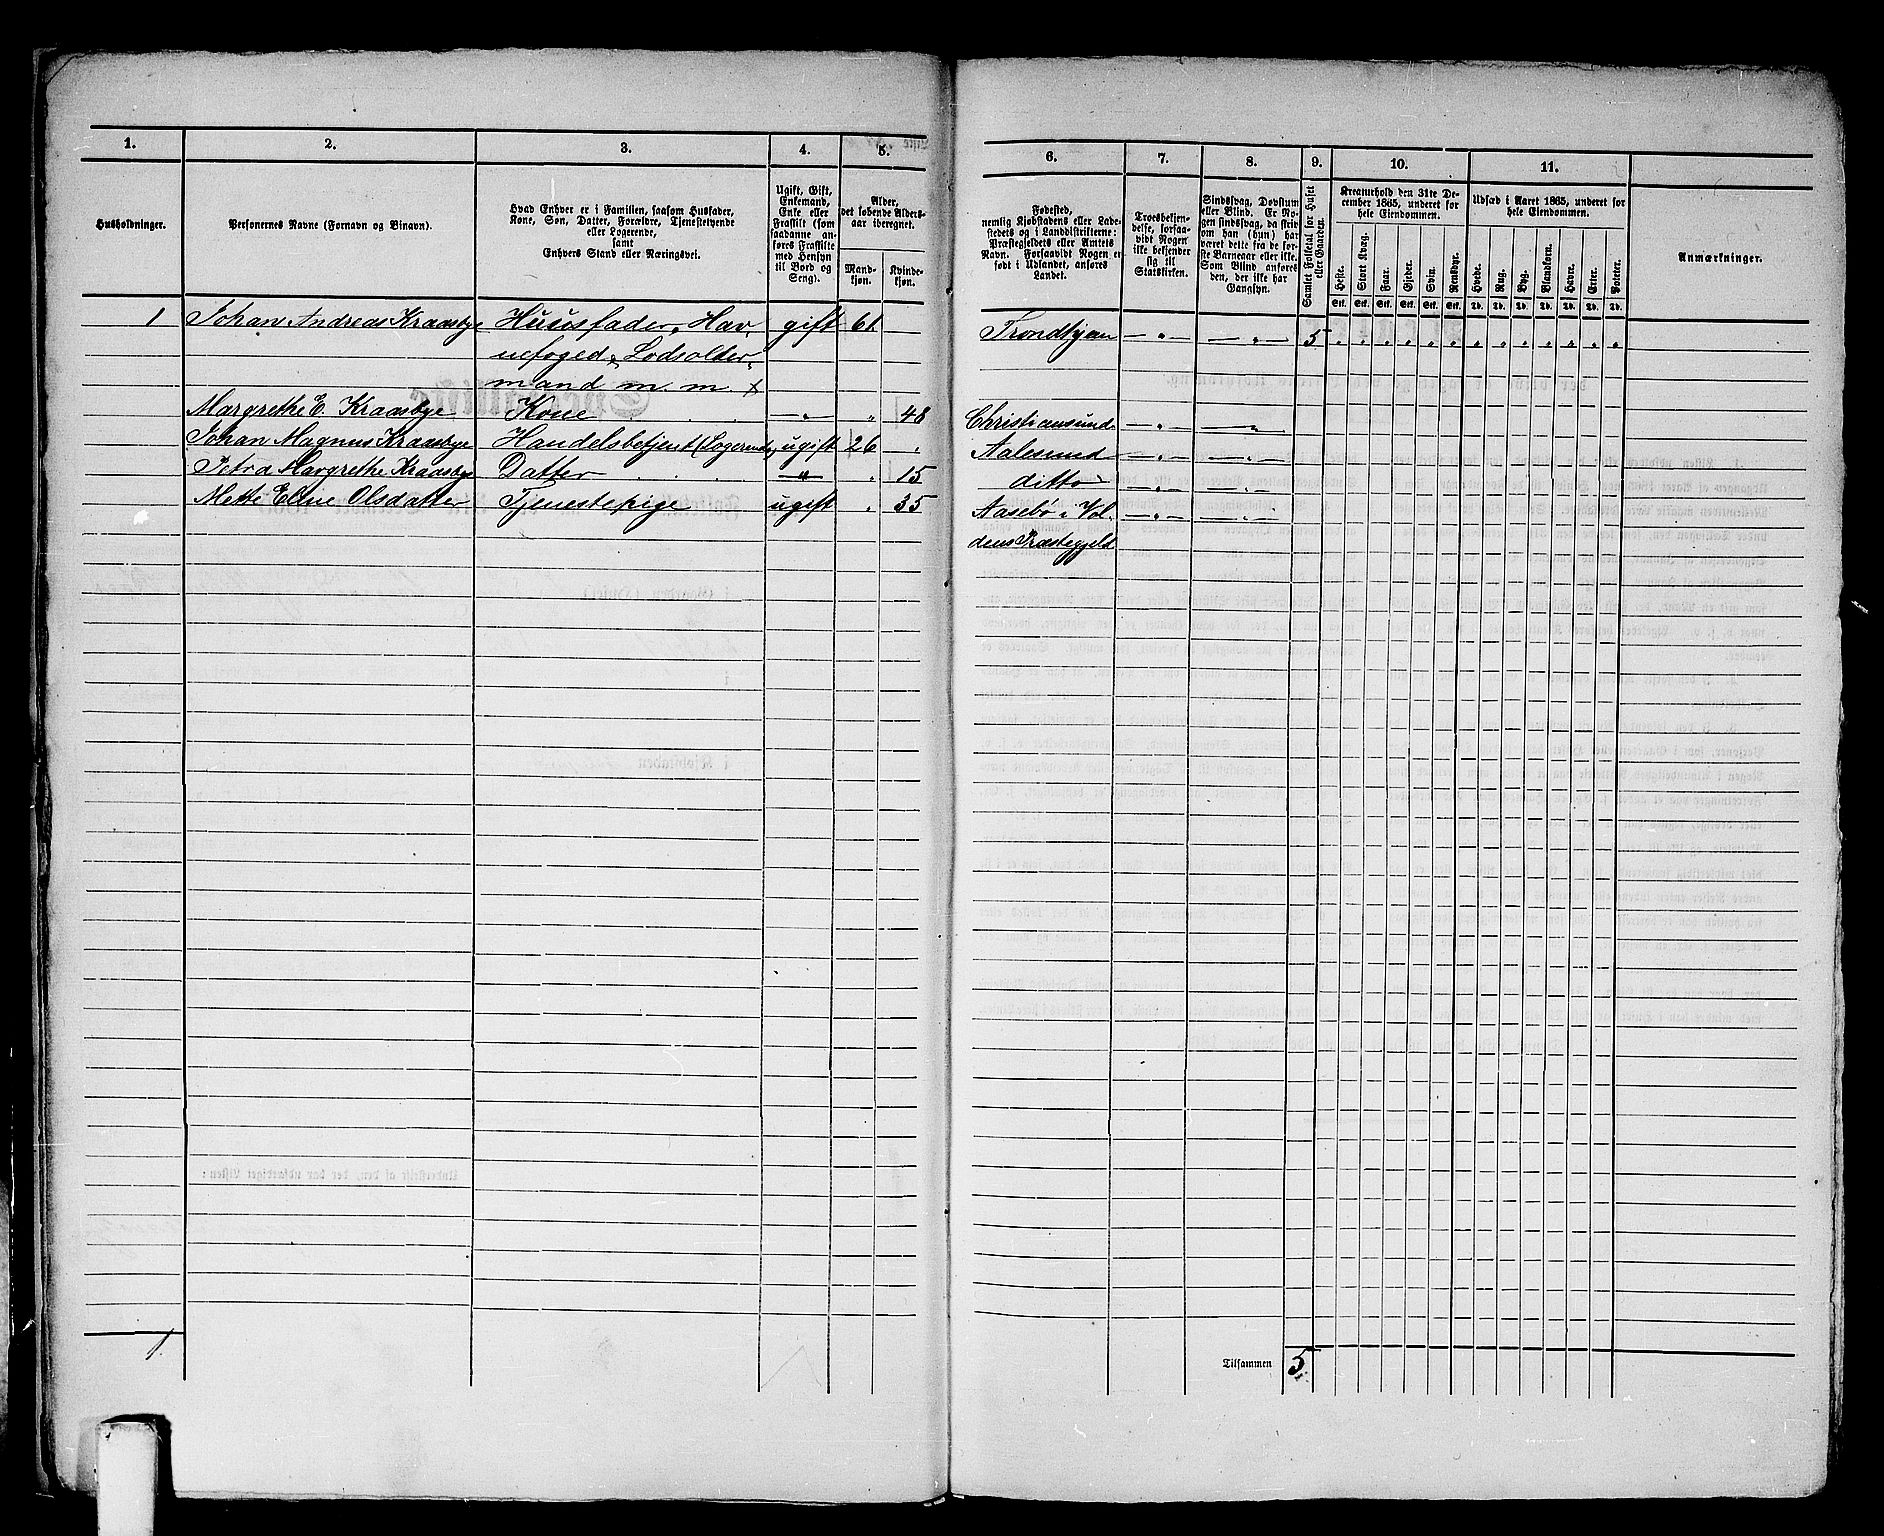 1. 2. 3. 4. 5.
Husholdninger.
Personernes Navne (Fornavn og Binavn).
Hvad Enhver er i Familien, saasom Husfader,
Kone, Søn, Datter, Forældre, Tjenestetyende
eller Logerende,
samt
Enhvers Stand eller Næringsvei.
Ugift, Gift,
Enkemand,
Enke eller
Fraskilt (som
saadanne an-
føres Fraskilte
med Hensyn
til Bord og
Seng).
Alder,
det løbende Alders-
aar iberegnet.
Mand-
kjøn.
Kvinde-
kjøn.
1 Johan Andreas Kraasbye Huusfader, Hav gift 61
nefoged, Lodsolder
mand m. m. x
Margrethe E. Kraasbye Kone — " — " 48
Johan Magnus Kraasbye Handelsbetjent (Logerende) ugift 26 "
Petra Margrethe Kraasbye Datter " " 15
Mette Eline Olsdatter Tjenestepige ugift " 35
1.
6. 7. 8. 9. 10. 11.
Fødested,
nemlig Kjøbstadens eller Lade-
stedets og i Landdistrikterne:
Præstegjeldets eller Amtets
Navn. Forsaavidt Nogen er
født i Udlandet, anføres
Landet.
Troesbekjen-
delse, forsaa-
vidt Nogen
ikke bekjender
sig til
Statskirken.
Sindssvag, Døvstum
eller Blind. Er No-
gen sindssvag, da skriv
om han (hun) har
været dette fra de før-
ste Barneaar eller ikke.
Som Blind anføres
den, der ikke har
Gangsyn.
Samlet Folketal for Huset
eller Gaarden.
Kreaturhold den 31te De-
cember 1865, underet for
hele Eiendommen.
Heste. Stort Kvæg. Faar. Gjeder. Svin. Rensdyr.
Stk. Stk. Stk. Stk. Stk. Stk.
Udsæd i Aaret 1865, underet for
hele Eiendommen.
Hvede. Rug. Byg. Blandkorn. Havre. Erter. Poteter.
Td. Td. Td. Td. Td. Td. Td.
Anmærkninger.
Trondhjem — " — — " — 5 " " " " " " " " " " " " "
Christiansund — " — — " —
Aalesund — " — — " —
ditto — " — — " —
Aasebø i Vol — " — — " —
dens Præstegjeld
Tilsammen 5